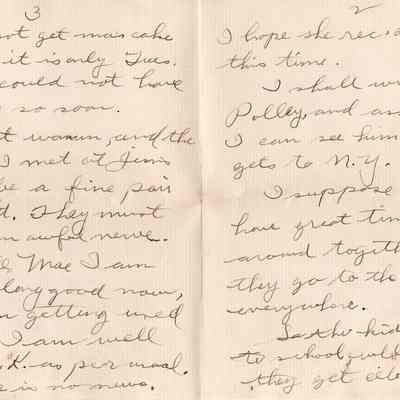 3
not get mais cake
it is only Tues.
could not have
so soon.
t woman, and the
I met at Jim's
be a fine pair
They must
an awful nerve.
Mae I am
long good now,
getting used
I am well
O.K. as per usual.
is no news.
2
I hope she rec.
this time.
I shall wr
Polley, and as
I can see him
gets to N.Y.
I suppose
have great tim
around togeth
they go to the
everywhere.
Is the kid
to school,
they get